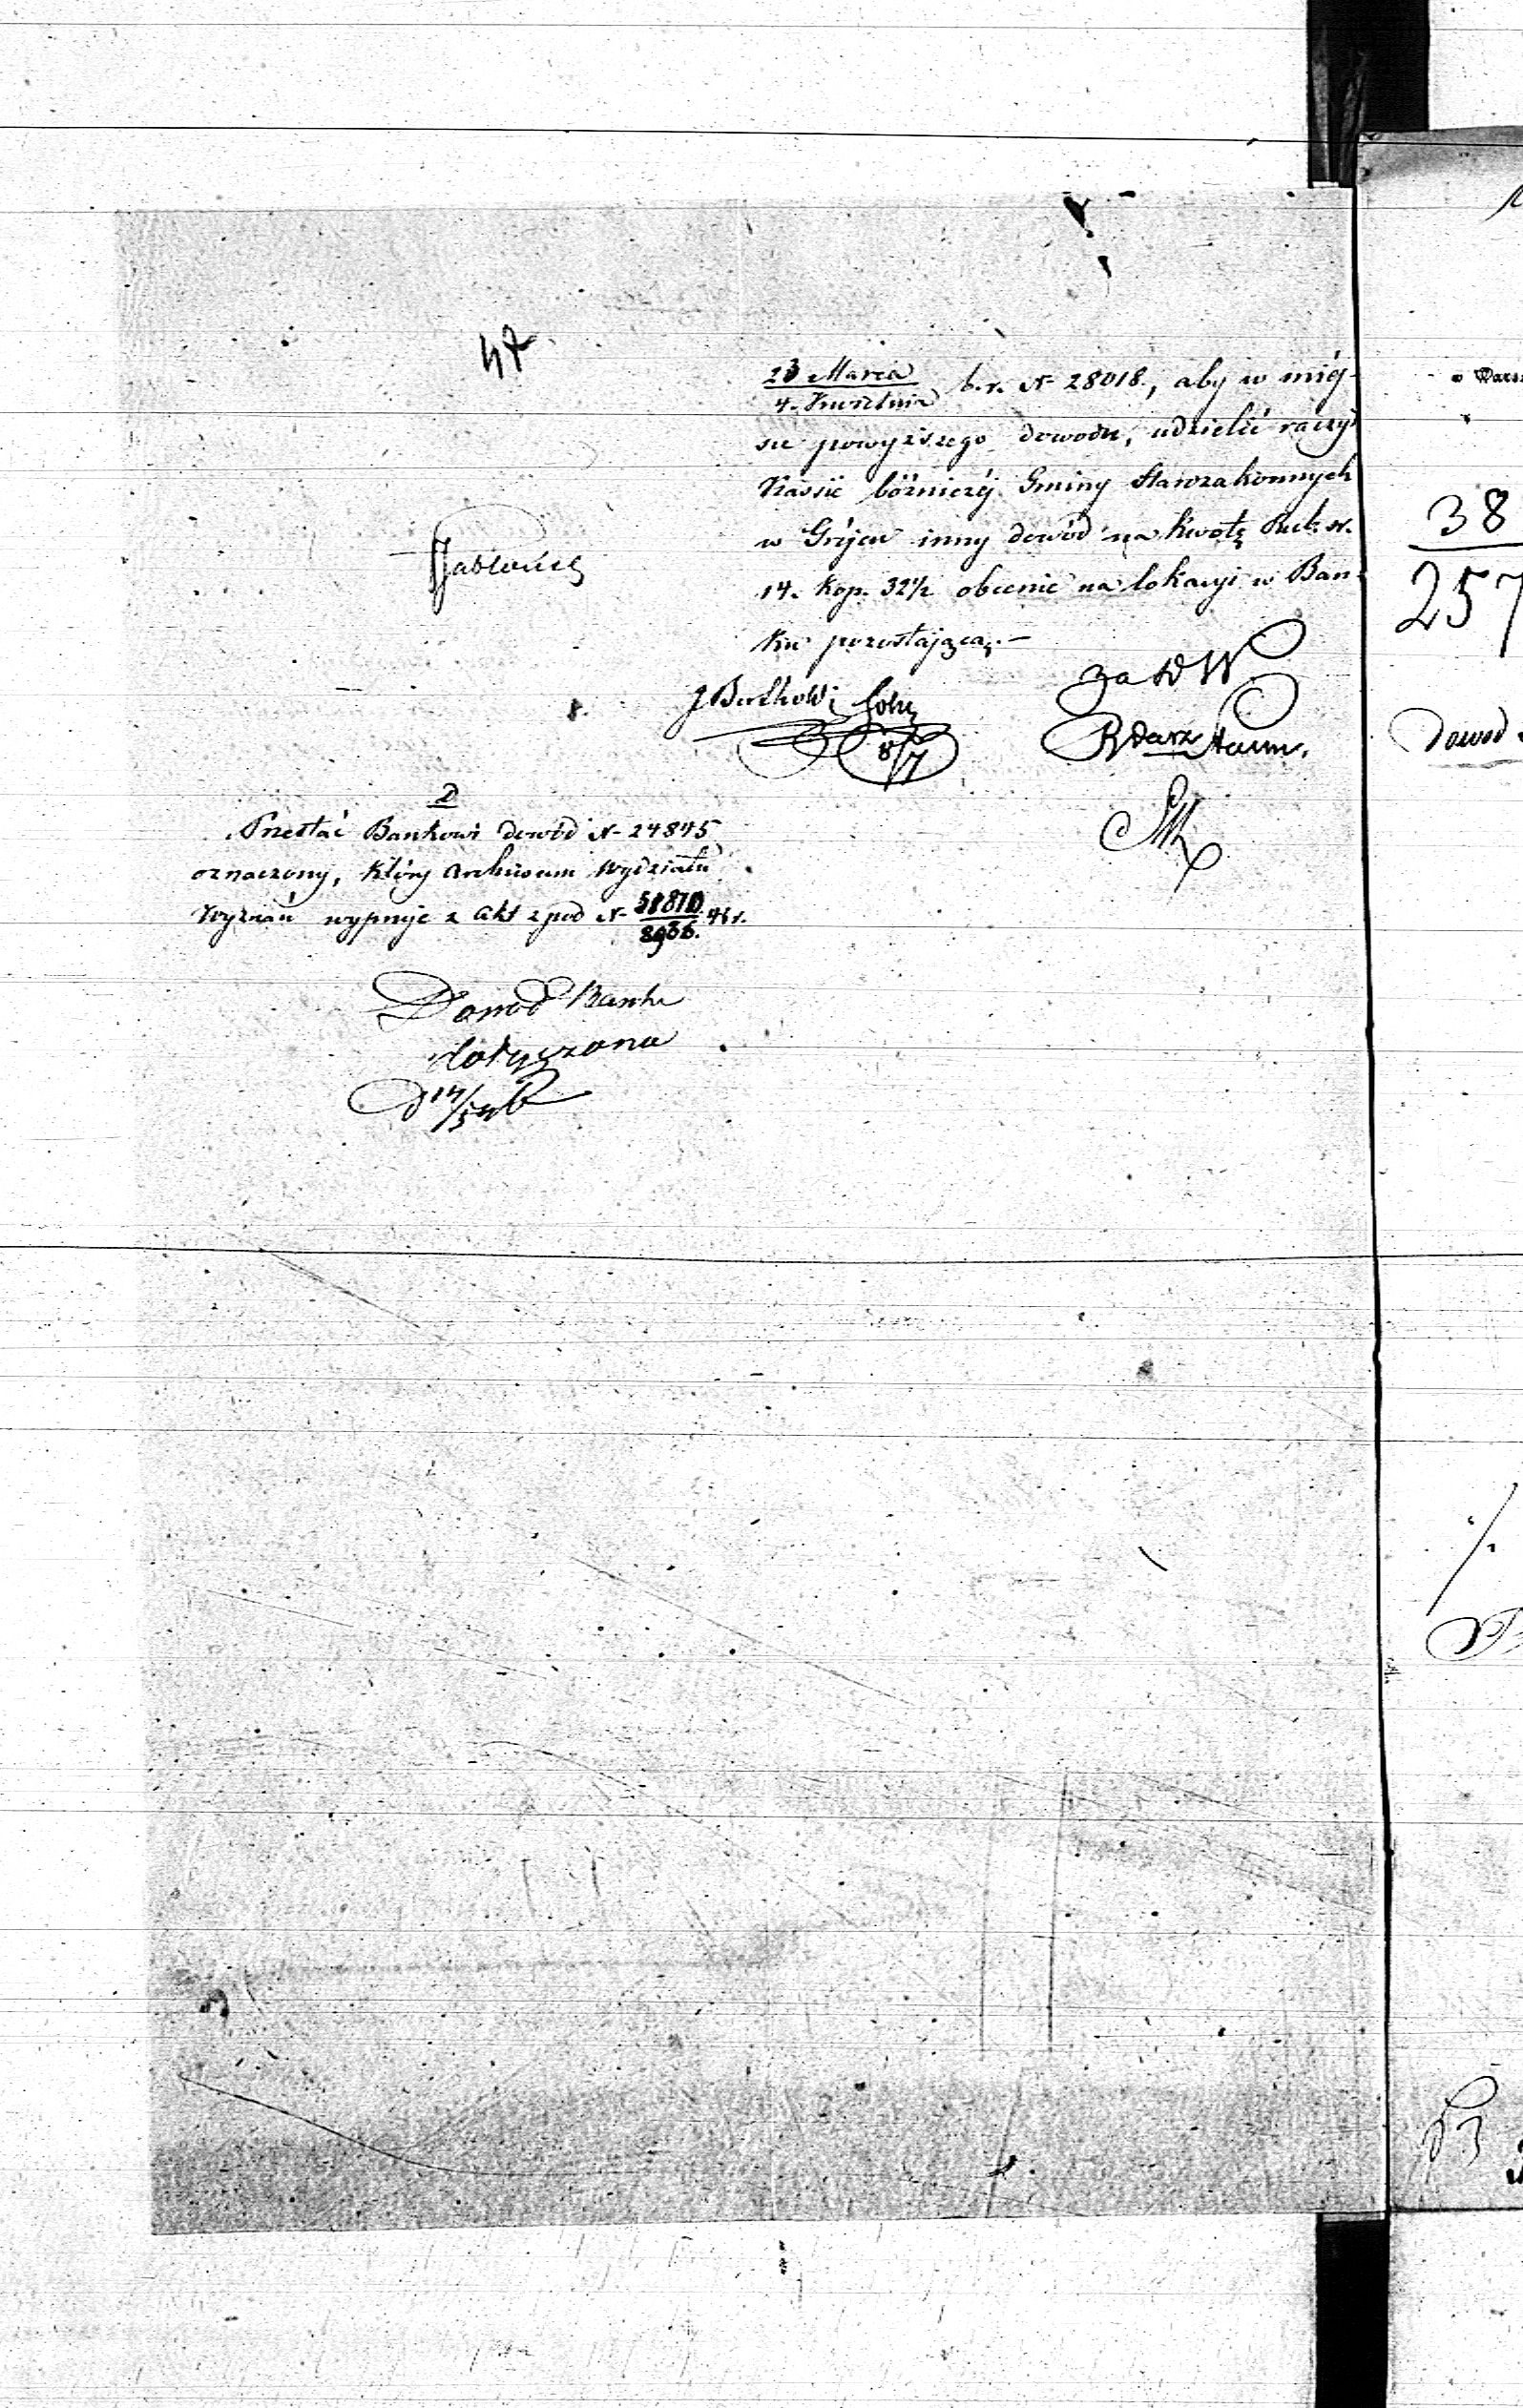 47
23 Marca
4. Kwietnia b. r. N 28018., aby w miéj-
sce powyższego dowodu, udzielić raczył
Kassie bóżniczéj Gminy Starozakonnych
w Grójcu inny dowód na kwotę Rub. sr.
14. kop. 32½ obecnie na lokacyi w Ban-
ku pozostającą.—
za D W
8/7
2
Przesłać Bankowi dowód N 24845
oznaczony, który Archiwum Wydziału
Wyznań wyjmie z akt z pod N 51870
8936. 46 r.
Dowód Banku
dołączono
d 14/5
38
257
Dowód